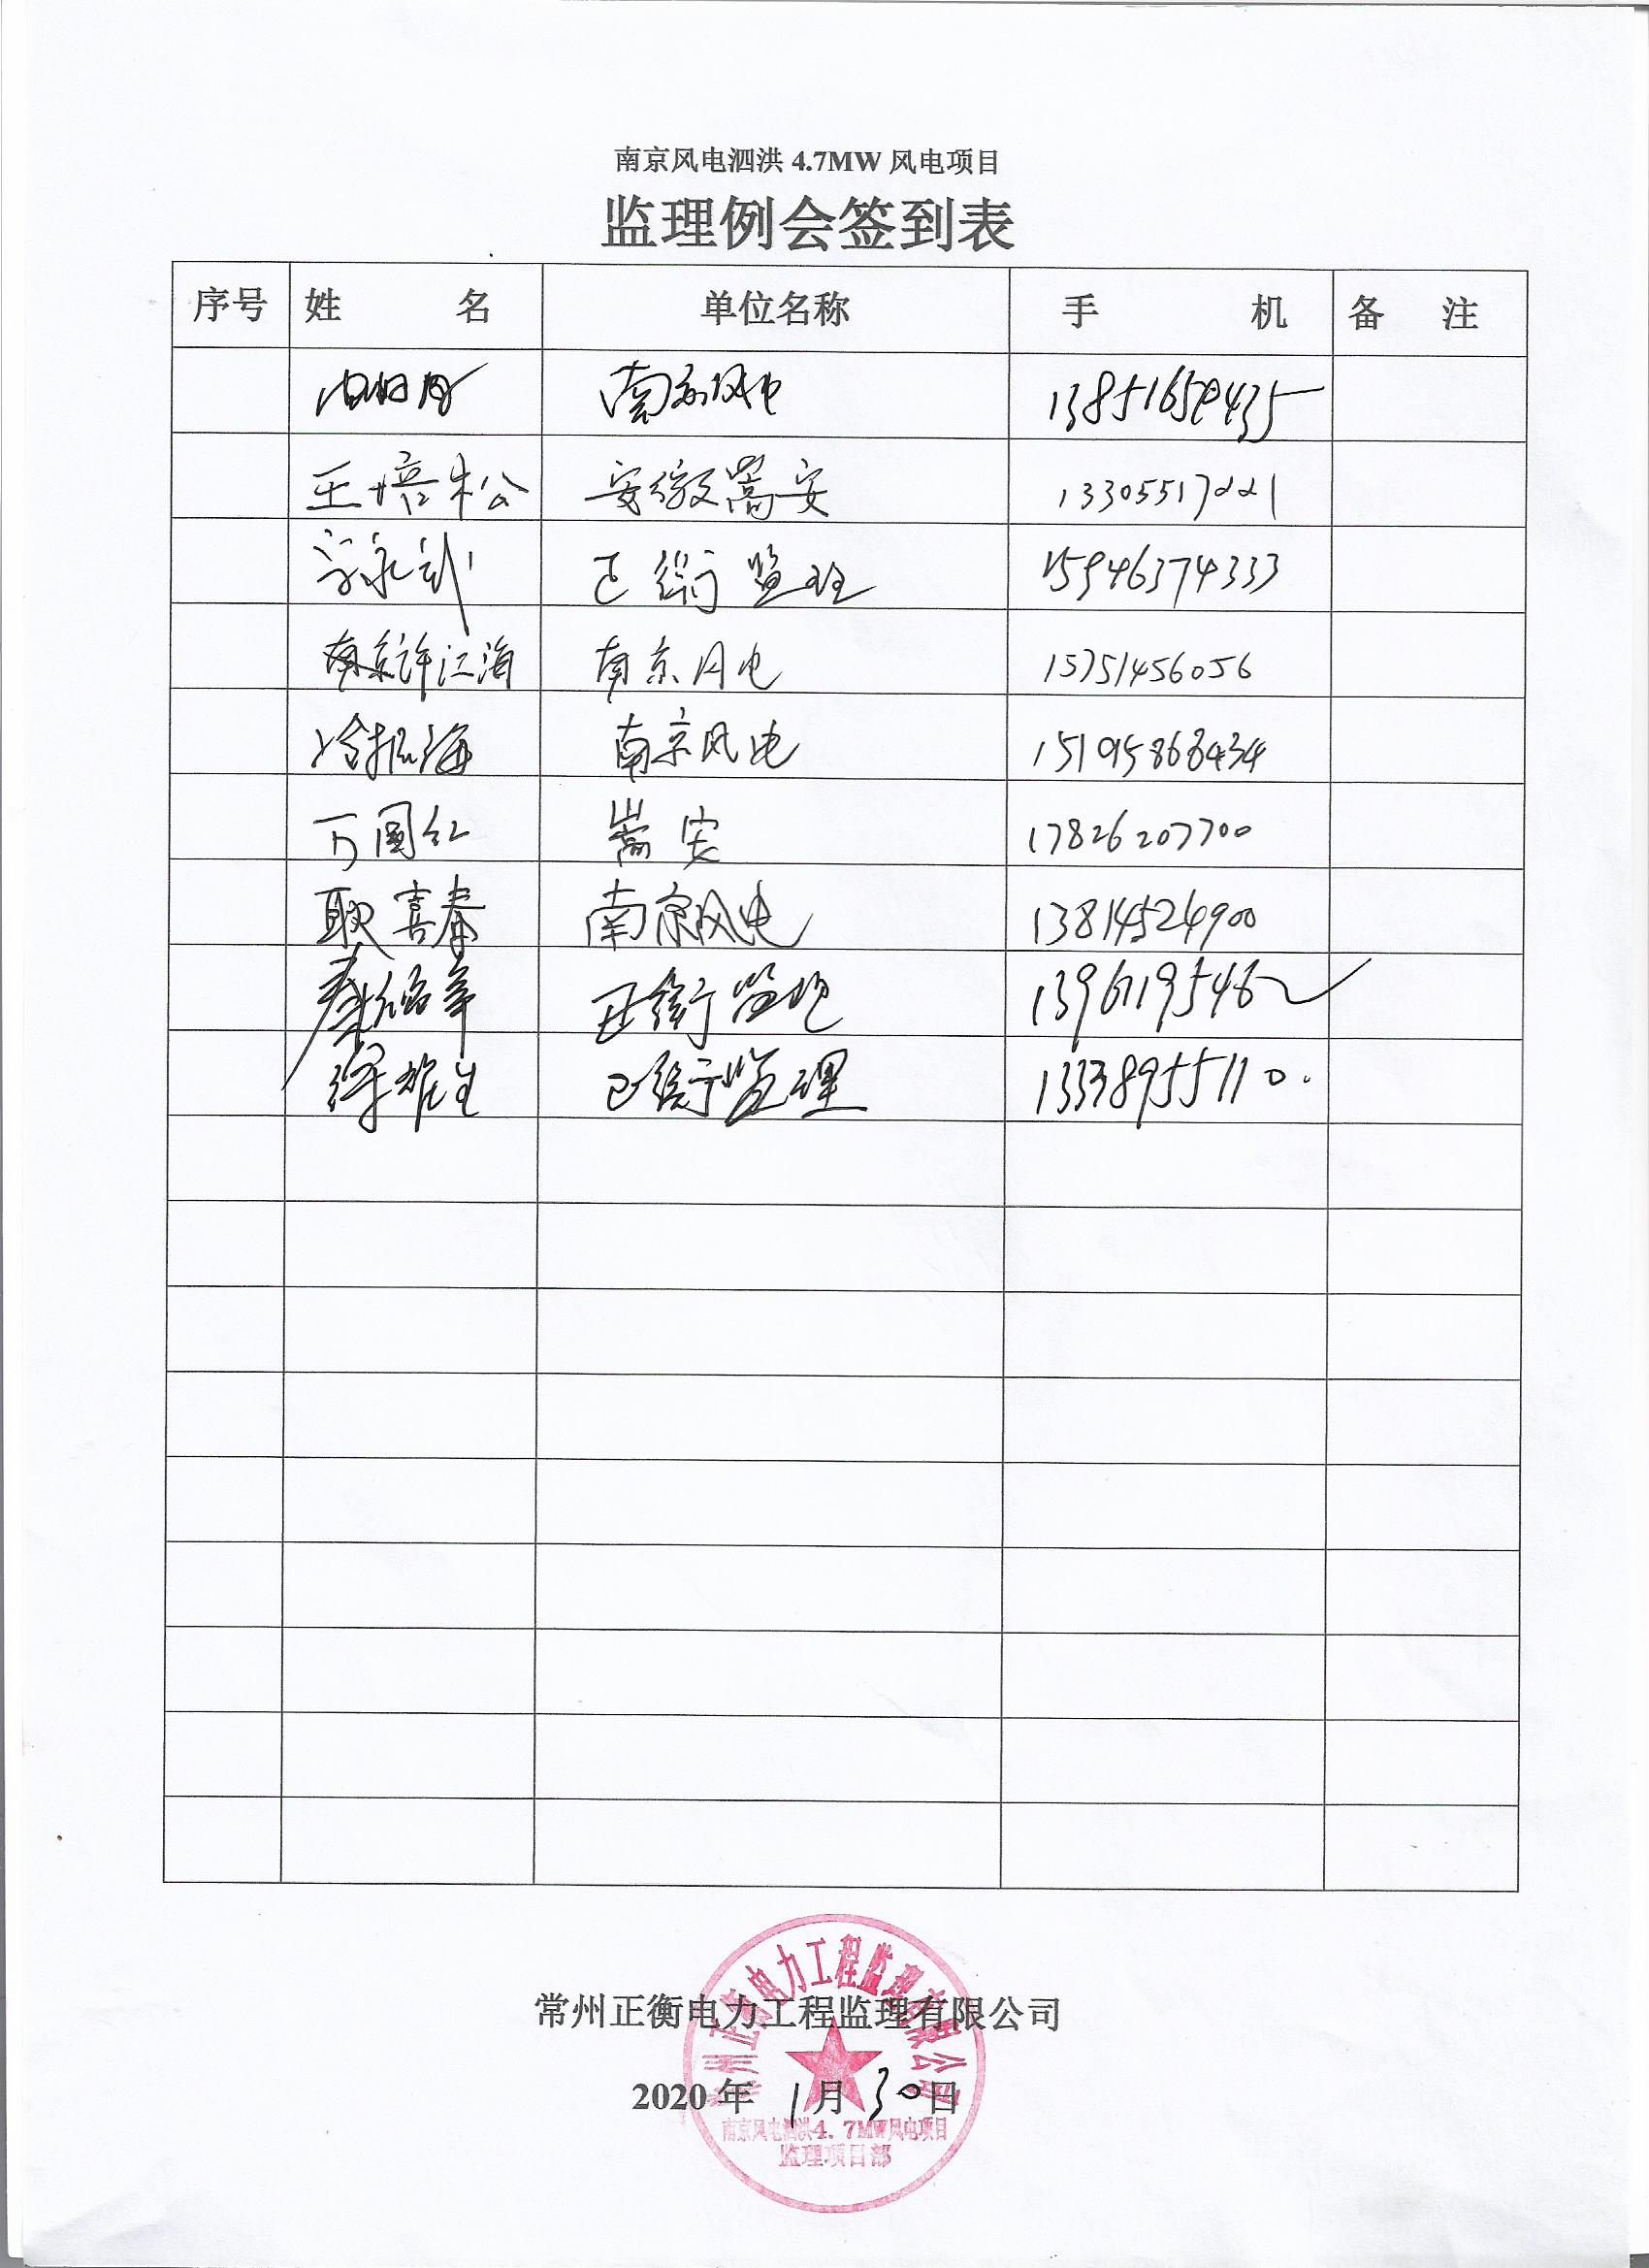 南京风电泗洪 4.7MW 风电项目
监理例会签到表
序号 姓 名 单位名称 手 机 备 注
南京风电 13851650435
王培松 安徽嵩安 13305517221
正衡监理 15946374333
南京许江海 南京风电 15751456056
冷振海 南京风电 15195868434
万国红 嵩安 17826207700
耿喜春 南京风电 13814524900
正衡监理
正衡监理 13338955110.
常州正衡电力工程监理有限公司
常州正衡电力工程监理有限公司
2020 年 1 月 30 日
南京风电泗洪4.7MW风电项目
监理项目部